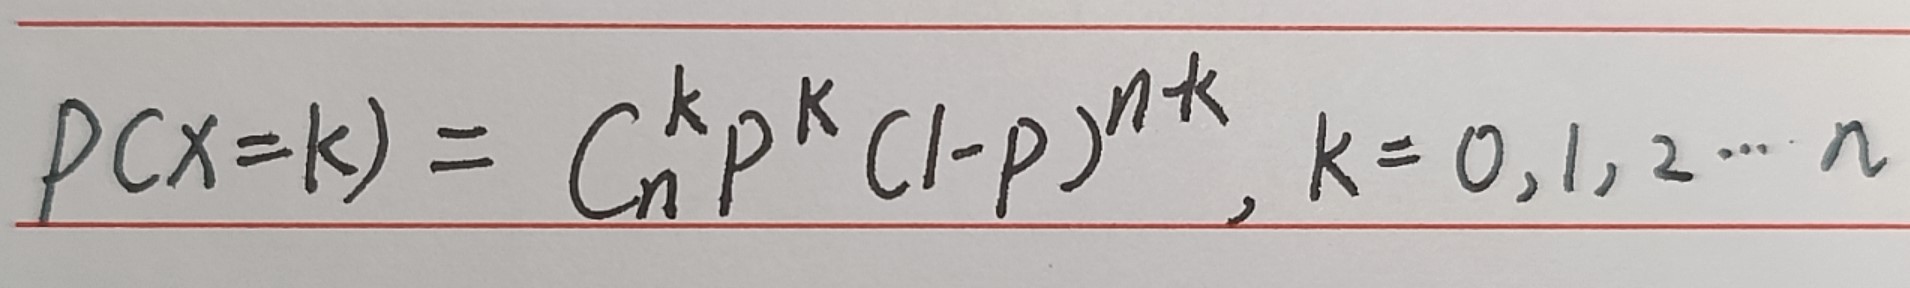 P(X=k) = C_n^k p^k (1-p)^{n-k}, k = 0, 1, 2 ... n